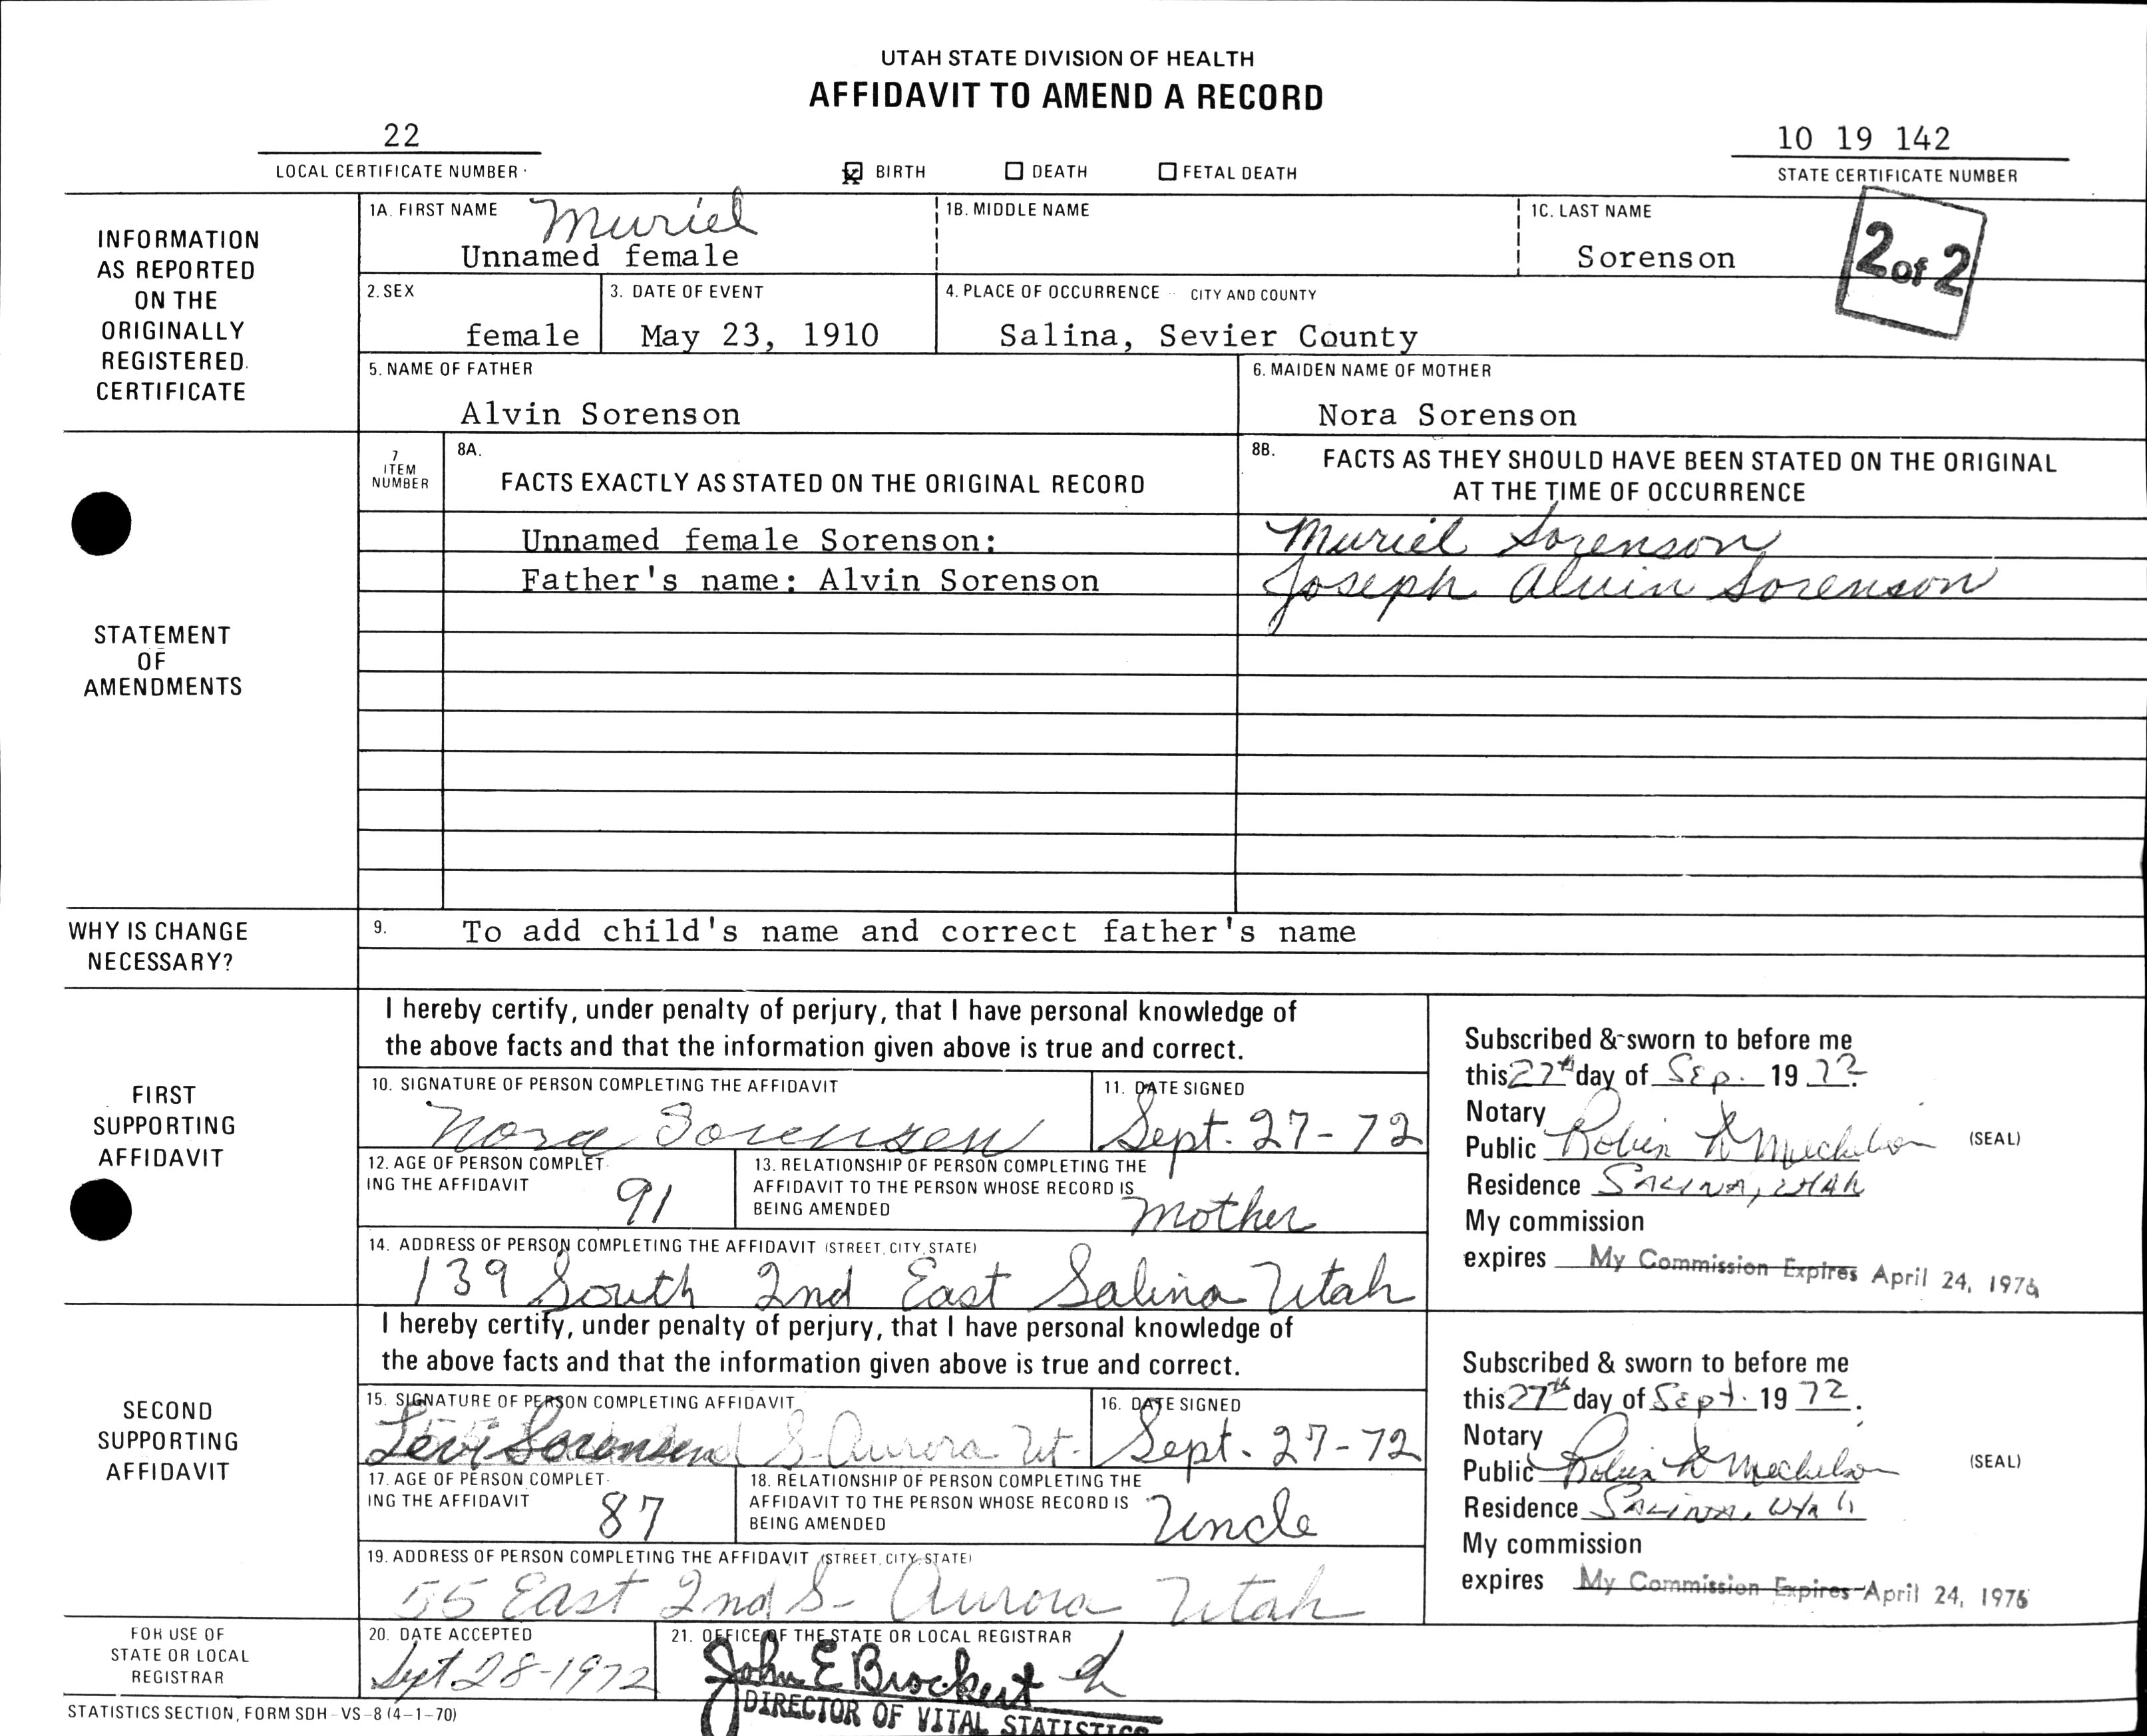 UTAH STATE DIVISION OF HEALTH
AFFIDAVIT TO AMEND A RECORD
22
LOCAL CERTIFICATE NUMBER
x BIRTH DEATH FETAL DEATH
10 19 142
STATE CERTIFICATE NUMBER
INFORMATION AS REPORTED ON THE ORIGINALLY REGISTERED CERTIFICATE
1A. FIRST NAME Muriel
Unnamed female
1B. MIDDLE NAME
1C. LAST NAME
Sorenson
2 of 2
2. SEX
female
3. DATE OF EVENT
May 23, 1910
4. PLACE OF OCCURRENCE - CITY AND COUNTY
Salina, Sevier County
5. NAME OF FATHER
Alvin Sorenson
6. MAIDEN NAME OF MOTHER
Nora Sorenson
STATEMENT OF AMENDMENTS
7 ITEM NUMBER
8A.
FACTS EXACTLY AS STATED ON THE ORIGINAL RECORD
8B. FACTS AS THEY SHOULD HAVE BEEN STATED ON THE ORIGINAL
AT THE TIME OF OCCURRENCE
Unnamed female Sorenson: Muriel Sorenson
Father's name: Alvin Sorenson Joseph Alvin Sorenson
WHY IS CHANGE NECESSARY?
9. To add child's name and correct father's name
FIRST SUPPORTING AFFIDAVIT
I hereby certify, under penalty of perjury, that I have personal knowledge of
the above facts and that the information given above is true and correct.
10. SIGNATURE OF PERSON COMPLETING THE AFFIDAVIT
Nora Sorensen
11. DATE SIGNED
Sept. 27-72
12. AGE OF PERSON COMPLET-
ING THE AFFIDAVIT 91
13. RELATIONSHIP OF PERSON COMPLETING THE
AFFIDAVIT TO THE PERSON WHOSE RECORD IS
BEING AMENDED Mother
14. ADDRESS OF PERSON COMPLETING THE AFFIDAVIT (STREET, CITY, STATE)
139 South 2nd East Salina Utah
Subscribed & sworn to before me
this 27th day of Sep. 19 72
Notary
Public Robin (SEAL)
Residence SALINA, UTAH
My commission
expires My Commission Expires April 24, 1976
SECOND SUPPORTING AFFIDAVIT
I hereby certify, under penalty of perjury, that I have personal knowledge of
the above facts and that the information given above is true and correct.
15. SIGNATURE OF PERSON COMPLETING AFFIDAVIT
Levi Sorensen S. Aurora Ut.
16. DATE SIGNED
Sept. 27-72
17. AGE OF PERSON COMPLET-
ING THE AFFIDAVIT 87
18. RELATIONSHIP OF PERSON COMPLETING THE
AFFIDAVIT TO THE PERSON WHOSE RECORD IS
BEING AMENDED Uncle
19. ADDRESS OF PERSON COMPLETING THE AFFIDAVIT (STREET, CITY, STATE)
55 East 2nd S- Aurora Utah
Subscribed & sworn to before me
this 27th day of Sept. 19 72.
Notary
Public Robin (SEAL)
Residence SALINA, Utah
My commission
expires My Commission Expires April 24, 1976
FOR USE OF STATE OR LOCAL REGISTRAR
20. DATE ACCEPTED
Sept 28-1972
21. OFFICE OF THE STATE OR LOCAL REGISTRAR
John E Brockert
DIRECTOR OF VITAL STATISTICS
STATISTICS SECTION, FORM SDH-VS-8 (4-1-70)